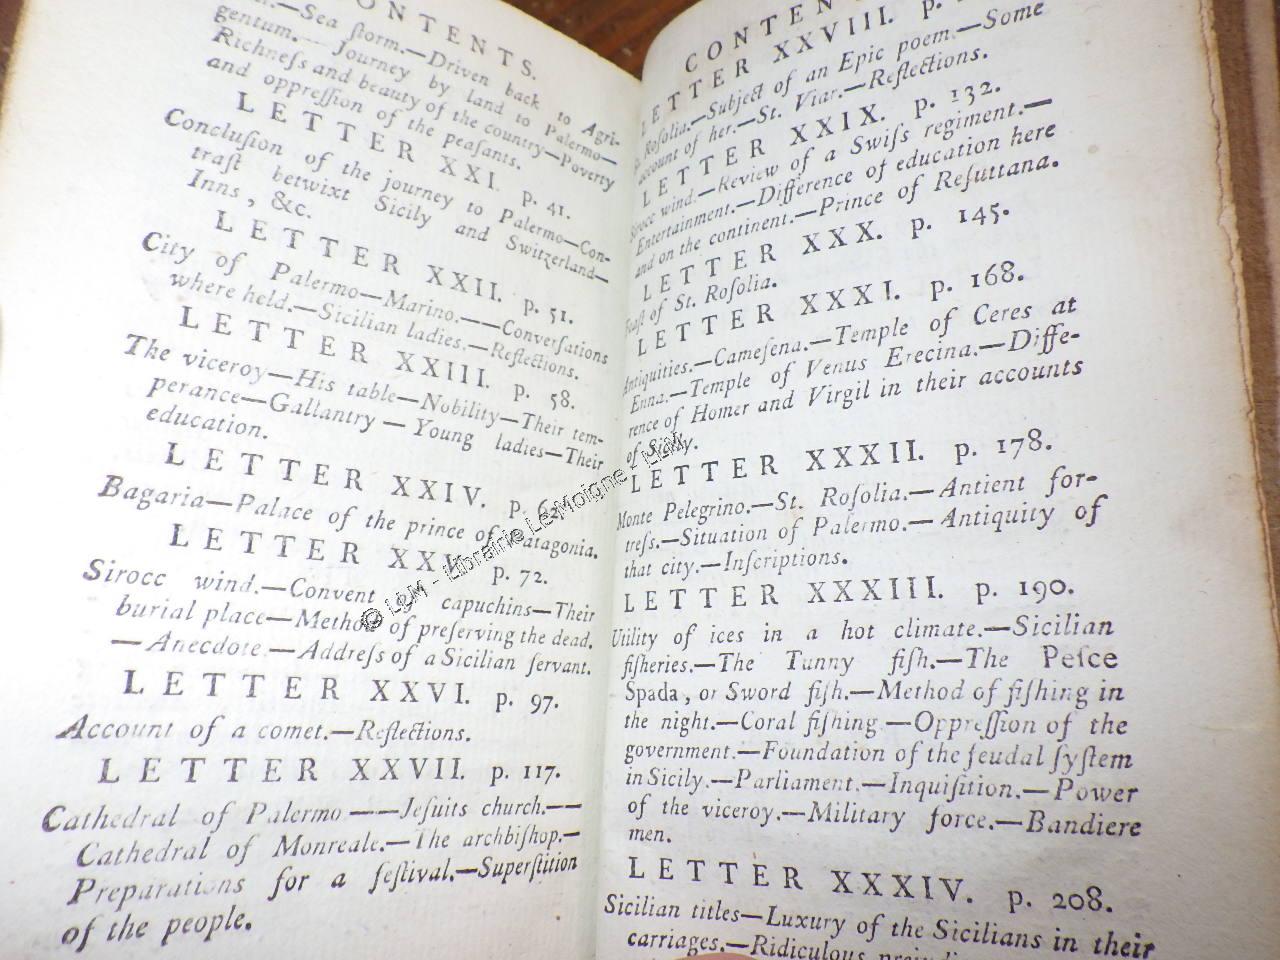 CONTENTS.
Sea ſtorm.—Driven back to Agri-
gentum.—Journey by land to Palermo—
Richneſs and beauty of the country—Poverty
and oppreſſion of the peaſants.
LETTER XXI. p. 41.
Concluſion of the journey to Palermo—Con-
traſt betwixt Sicily and Switzerland—
Inns, &c.
LETTER XXII. p. 51.
City of Palermo—Marino.——Converſations
where held.—Sicilian ladies.—Reflections.
LETTER XXIII. p. 58.
The viceroy—His table—Nobility—Their tem-
perance—Gallantry—Young ladies—Their
education.
LETTER XXIV. p. 62.
Bagaria—Palace of the prince of Patagonia.
LETTER XXV. p. 72.
Sirocc wind.—Convent of capuchins—Their
burial place—Method of preſerving the dead.
—Anecdote.—Addreſs of a Sicilian ſervant.
LETTER XXVI. p. 97.
Account of a comet.—Reflections.
LETTER XXVII. p. 117.
Cathedral of Palermo——Jeſuits church.——
Cathedral of Monreale.—The archbiſhop.—
Preparations for a feſtival.—Superſtition
of the people.
CONTEN
LETTER XXVIII. p.
St. Roſolia.—Subject of an Epic poem.—Some
account of her.—St. Viar.—Reflections.
LETTER XXIX. p. 132.
Sirocc wind.—Review of a Swiſs regiment.—
Entertainment.—Difference of education here
and on the continent.—Prince of Reſuttana.
LETTER XXX. p. 145.
Feaſt of St. Roſolia.
LETTER XXXI. p. 168.
Antiquities.—Cameſena.—Temple of Ceres at
Enna.—Temple of Venus Erecina.—Diffe-
rence of Homer and Virgil in their accounts
of Sicily.
LETTER XXXII. p. 178.
Monte Pelegrino.—St. Roſolia.—Antient for-
treſs.—Situation of Palermo.—Antiquity of
that city.—Inſcriptions.
LETTER XXXIII. p. 190.
Utility of ices in a hot climate.—Sicilian
fiſheries.—The Tunny fiſh.—The Peſce
Spada, or Sword fiſh.—Method of fiſhing in
the night.—Coral fiſhing.—Oppreſſion of the
government.—Foundation of the feudal ſyſtem
in Sicily.—Parliament.—Inquiſition.—Power
of the viceroy.—Military force.—Bandiere
men.
LETTER XXXIV. p. 208.
Sicilian titles—Luxury of the Sicilians in their
carriages.—Ridiculous
© L&M - Librairie Le Moigne - L&M